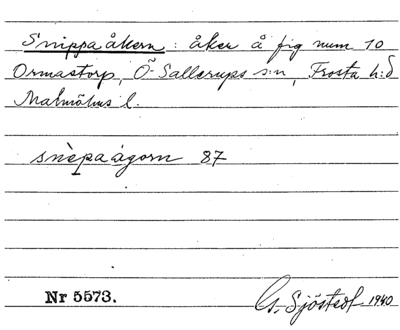 Snippaåkern: åker å fig num 10
Ormastorp, Ö Sallerups s:n, Frosta h:d
Malmöhus l.
snèpaågorn 87
Nr 5573.
G. Sjöstedt 1940